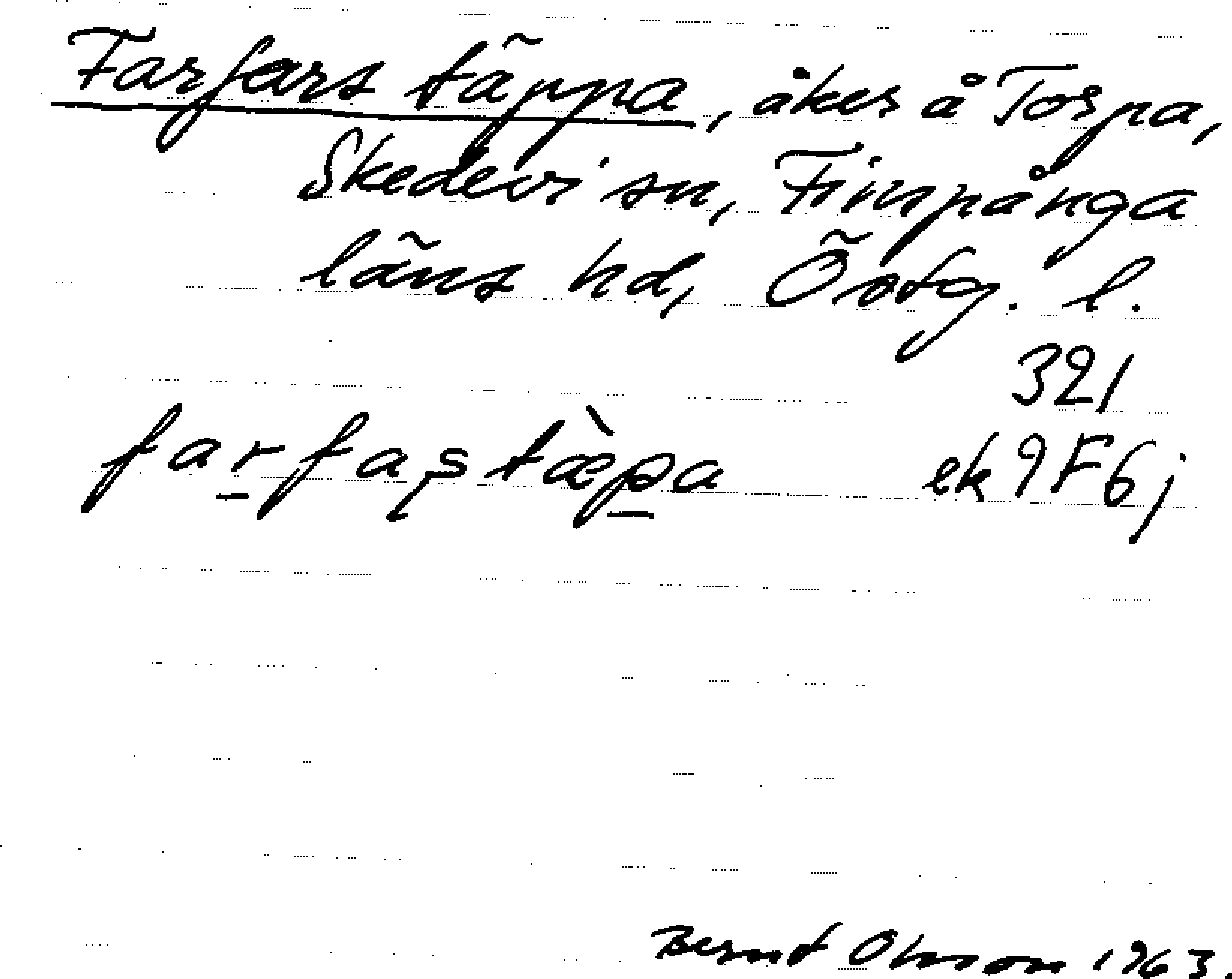 Farfars täppa, åker å Torpa,
Skedevi sn, Finspånga
läns hd, Östg. l.
321
farfaʂtæ̀pa ek 9F6j
Bernt Olsson 1963.